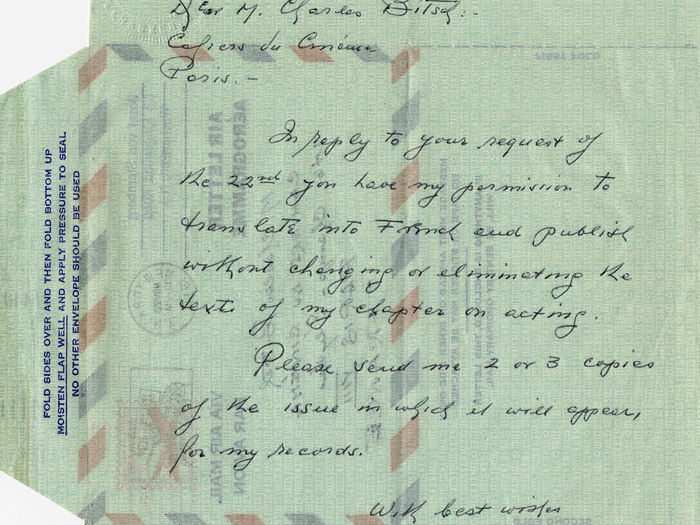 Dear M. Charles Bitsch:-
Cahiers du Cinéma
Paris.-
In reply to your request of
the 22nd you have my permission to
translate into French and publish
without changing or eliminating the
texts of my chapter on acting.
Please send me 2 or 3 copies
of the issue in which it will appear,
for my records.
With best wishes
FOLD SIDES OVER AND THEN FOLD BOTTOM UP
MOISTEN FLAP WELL AND APPLY PRESSURE TO SEAL
NO OTHER ENVELOPE SHOULD BE USED
FIRST FOLD
AEROGRAMME
AIR LETTER
VIA AIR MAIL
PAR AVION
SECOND